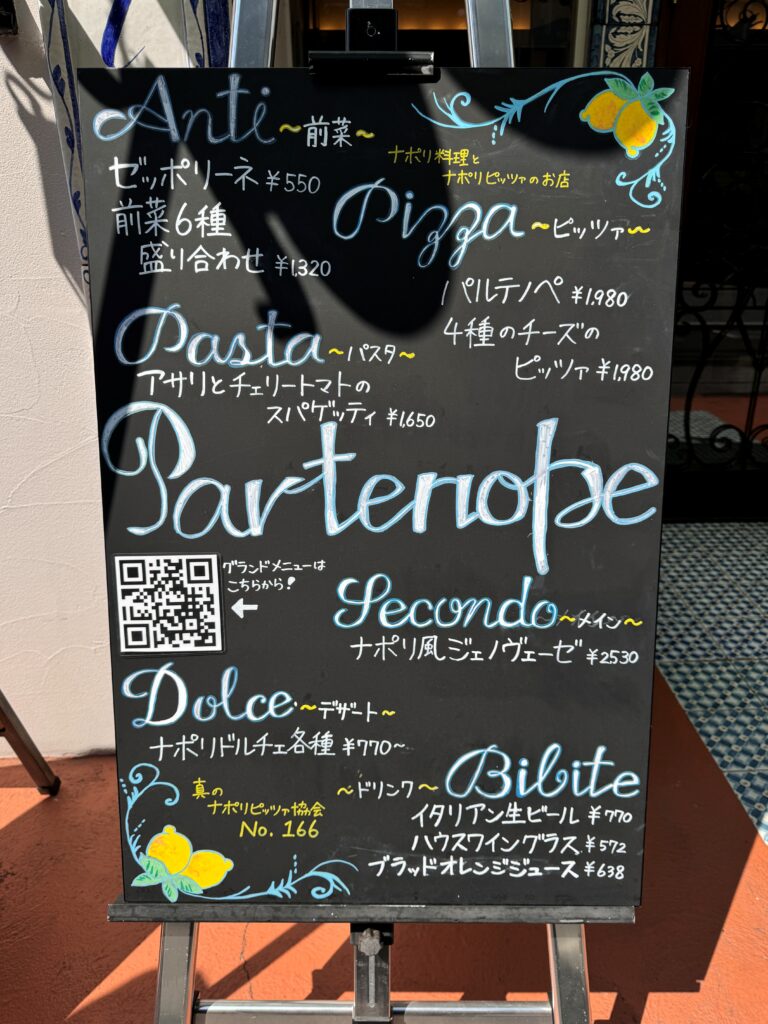 Anti ~前菜~
ゼッポリーネ ¥550
前菜6種
盛り合わせ ¥1,320
ナポリ料理と
ナポリピッツァのお店
Pizza ~ピッツァ~
パルテノペ ¥1,980
4種のチーズの
ピッツァ ¥1,980
Pasta ~パスタ~
アサリとチェリートマトの
スパゲッティ ¥1,650
Partenope
グランドメニューは
こちらから!
←
Secondo ~メイン~
ナポリ風ジェノヴェーゼ ¥2530
Dolce ~デザート~
ナポリドルチェ各種 ¥770~
真の
ナポリピッツァ協会
No. 166
~ドリンク~ Bibite
イタリアン生ビール ¥770
ハウスワイングラス ¥572
ブラッドオレンジジュース ¥638